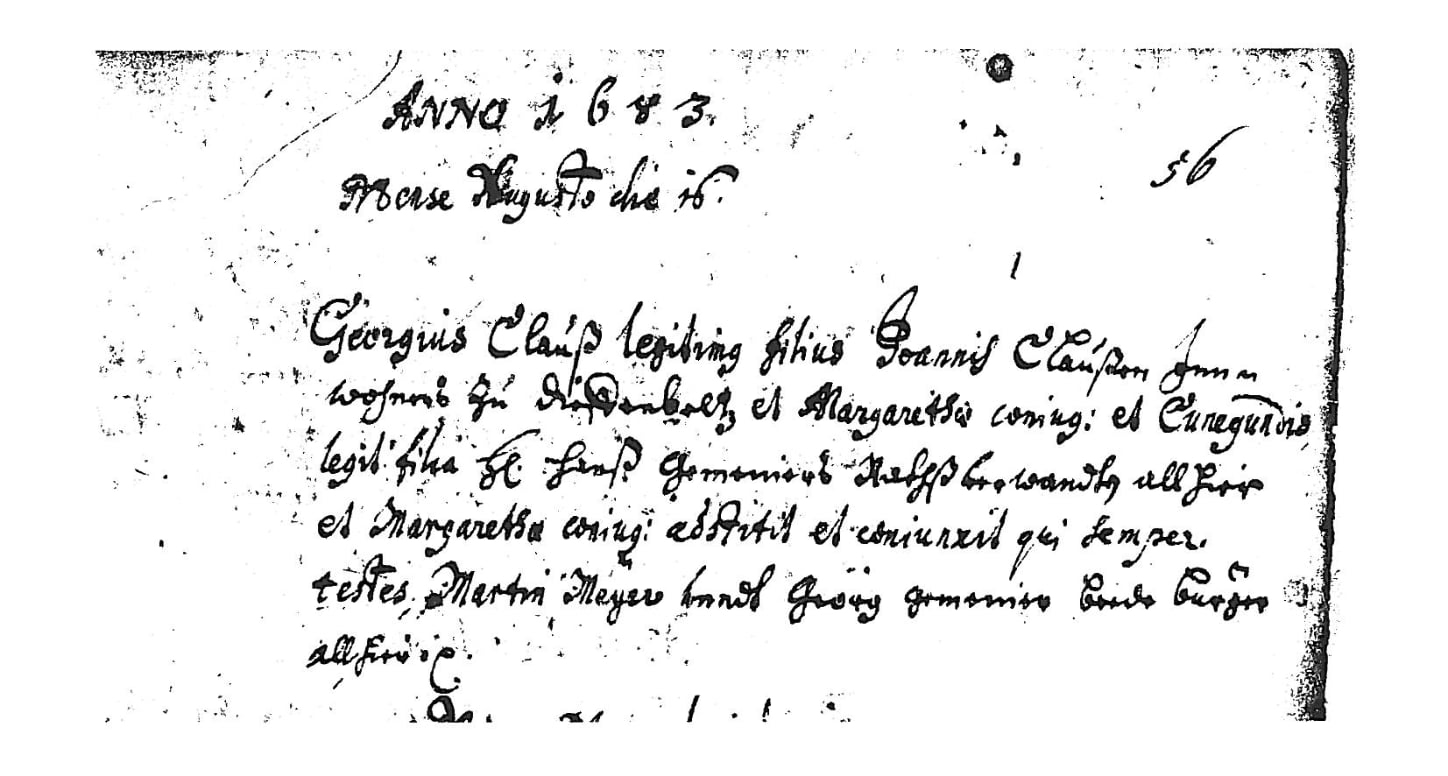 ANNO 1683.
56
Mense Augusto die 16.
Georgius Clauß legitimg filius Joannis Claußen Jnn
wohners zu et Margaretha coniug: et Cunegundis
legit: filia Hl. Hanß Gemeniers Rathßverwandten allhier
et Margaretha coniug: adstitit et coniunxit qui semper.
testes Martin Meÿer vnndt Geörg gemenier beede bürger
allhier